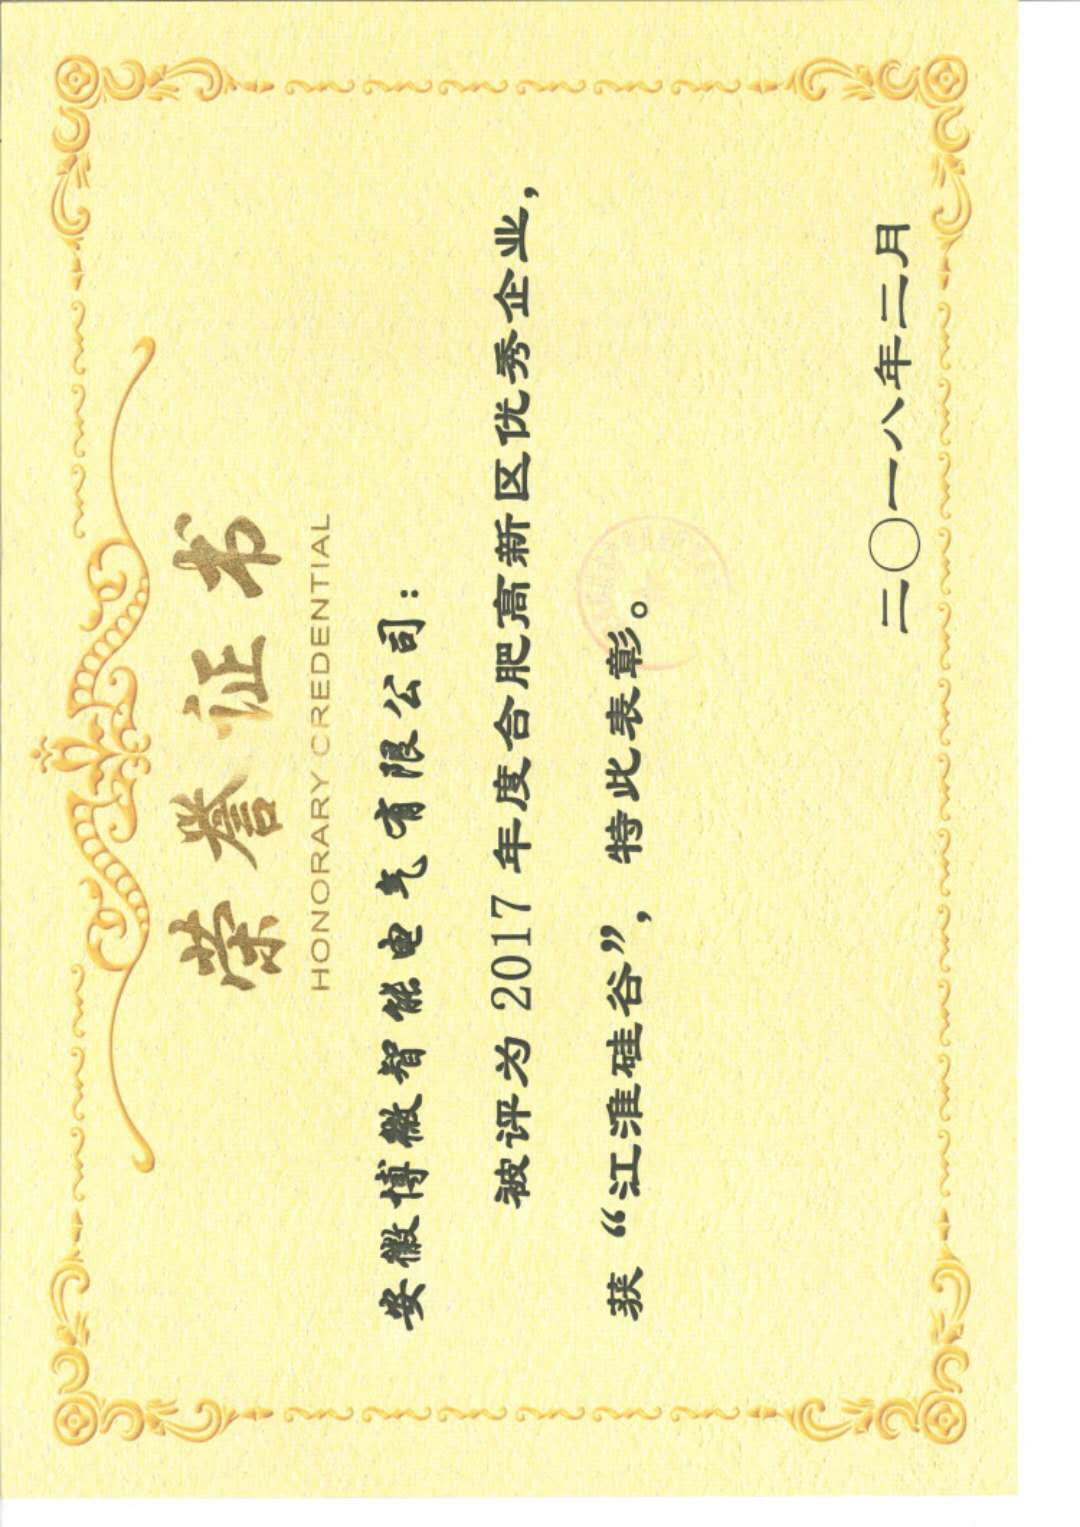 荣誉证书
HONORARY CREDENTIAL
安徽博微智能电气有限公司：
被评为 2017 年度合肥高新区优秀企业，
获“江淮硅谷”，特此表彰。
二〇一八年二月